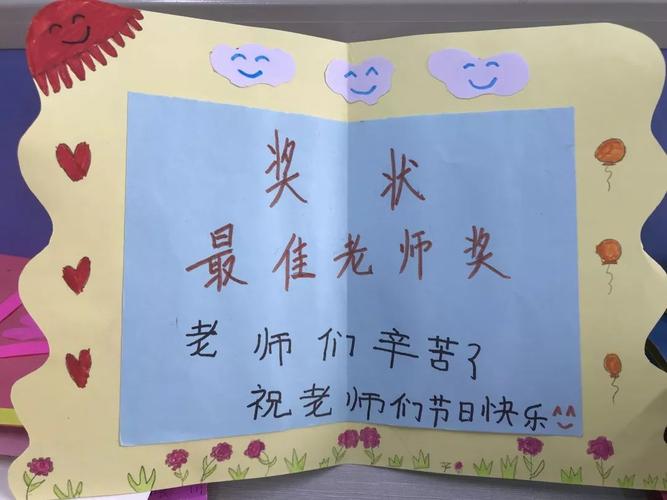 奖状
最佳老师奖
老师们辛苦了
祝老师们节日快乐